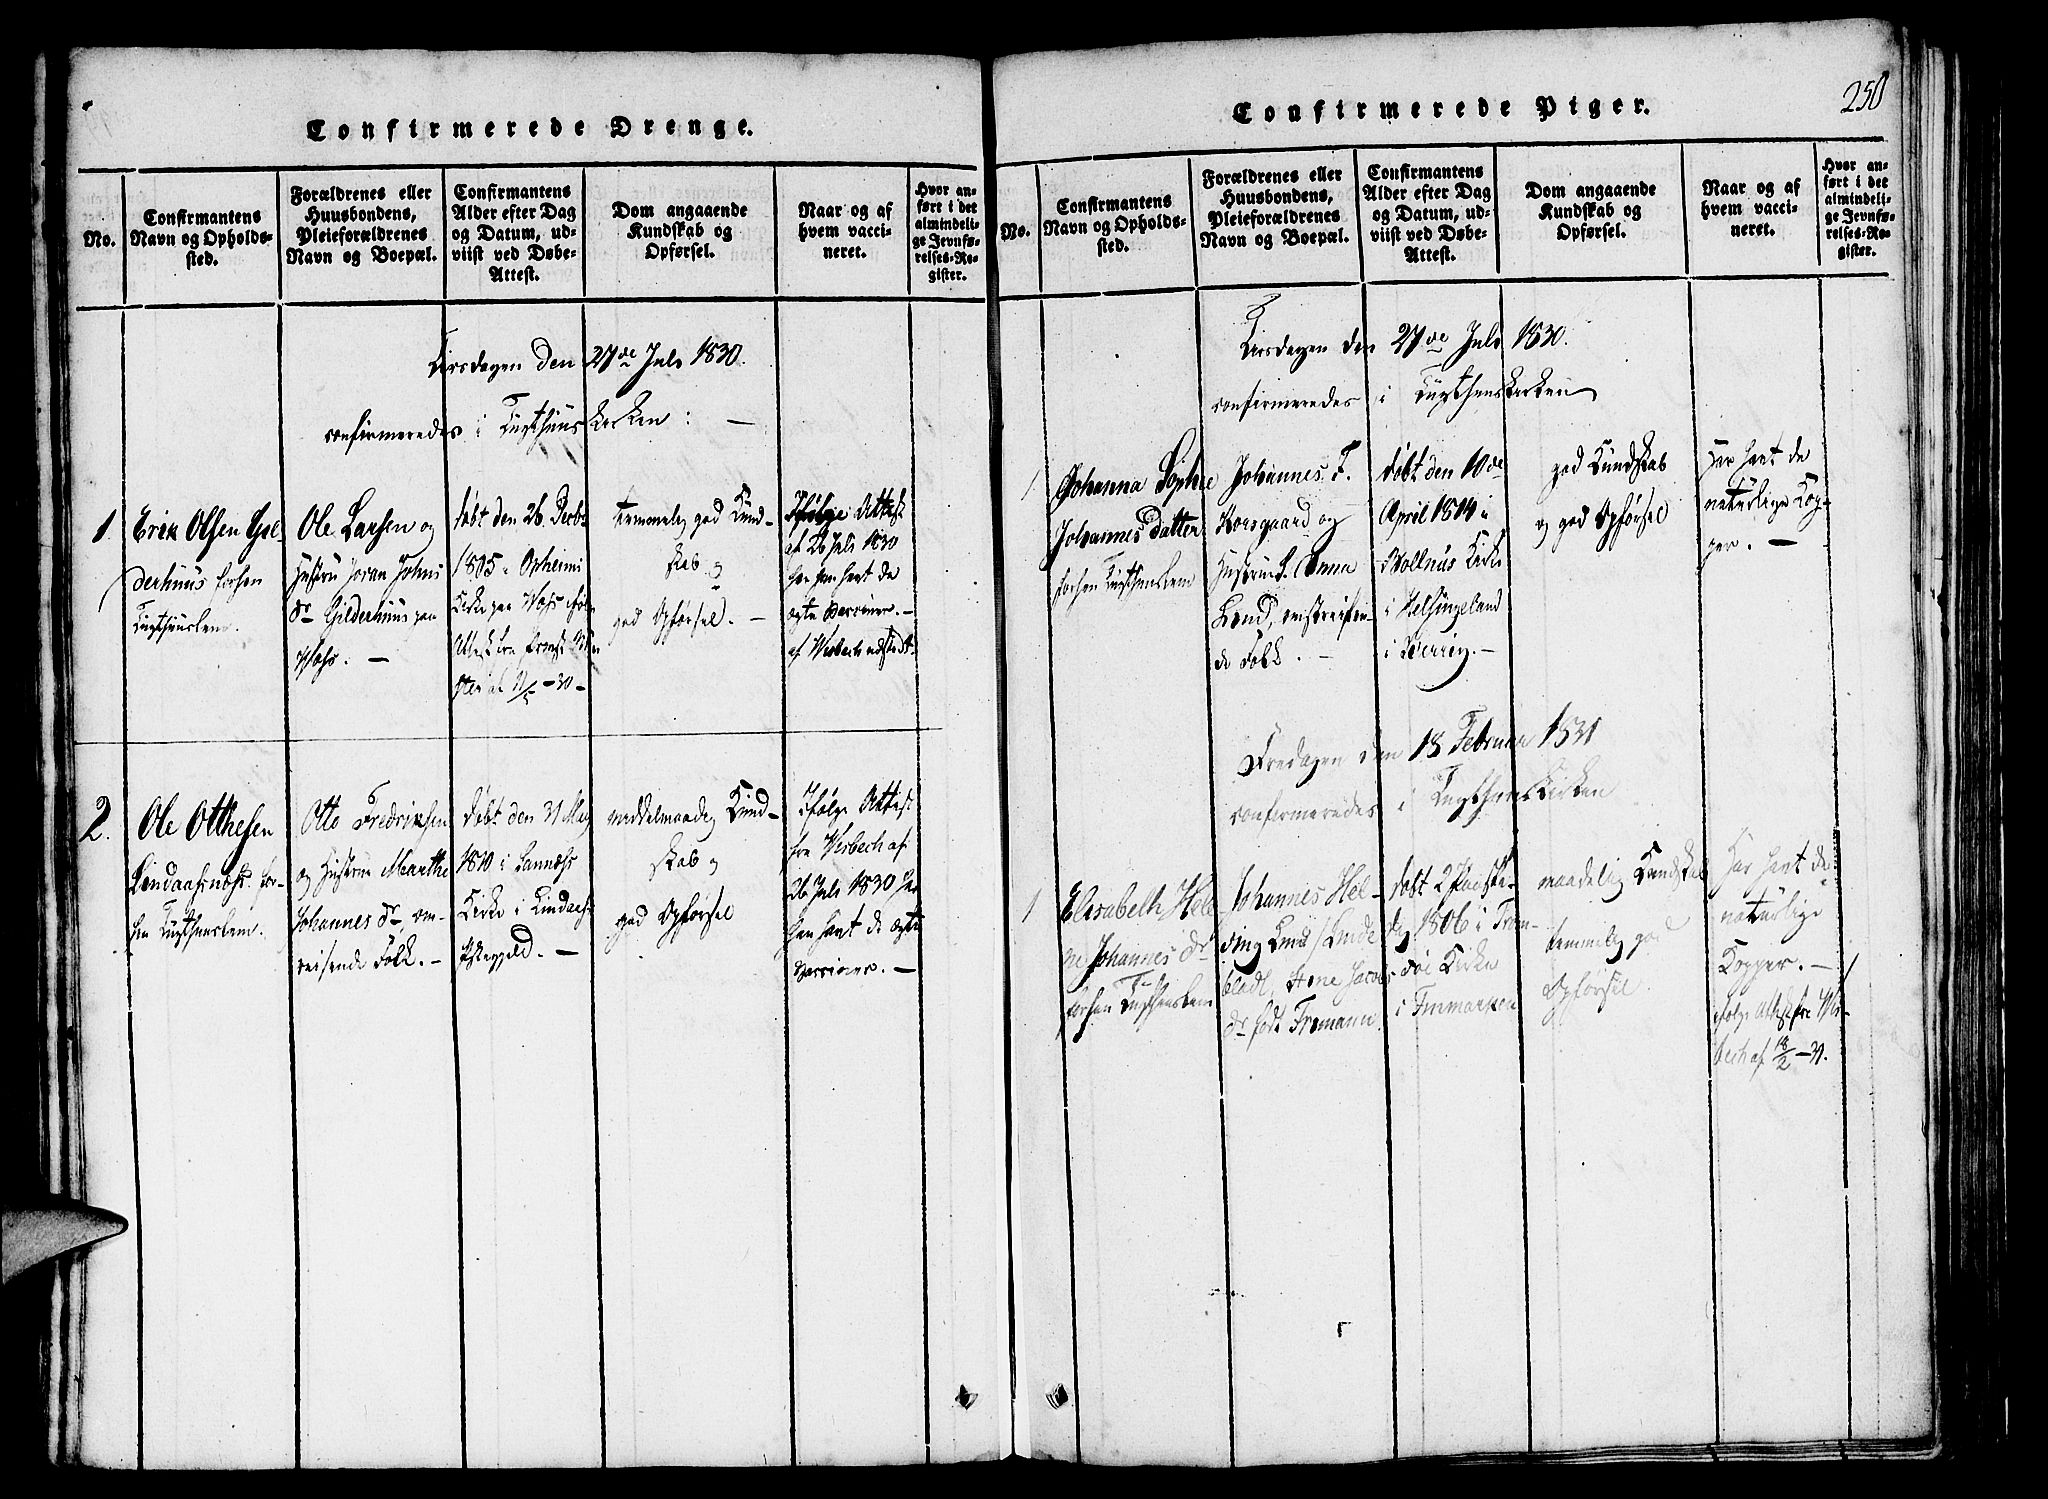 Confirmerede Drenge.
No.
Confirmantens
Navn og Opholds-
sted.
Forældrenes eller
Huusbondens,
Pleieforældrenes
Navn og Boepæl.
Confirmantens
Alder efter Dag
og Datum, ud-
viist ved Døbe-
Attest.
Dom angaaende
Kundskab og
Opførsel.
Naar og af
hvem vacci-
neret.
Hvor an-
ført i det
almindeli-
ge Jevnfø-
relses-Re-
gister.
Tirsdagen den 27de Juli 1830.
confirmeredes i Tugthuus Kirken : —
1.
Erik Olsen Gil-
derhuus forhen
Tugthuuslem.
Ole Larsen og
Hustru Joran Johns
Dr Gilderhuus paa
Woss. —
døbt den 26. Decbr
1805 Opheims
Kirke paa Woss
Attest fra
af 11/5 - 30 -
temmelig god Kund-
skab og
god Opførsel. —
Ifølge Attest
af 26 Juli 1830
har han havt de
ægte Vacciner. —
af Wisbech udstedt.
2.
Ole Otthesen
Lindaasnæss. for-
hen Tugthuuslem.
Otto Fredriksen
og Hustrue Marthe
Johannes Dr, om-
reisende Folk. —
døbt den 31 May
1810 i Sannæss
Kirke i Lindaas
Præstegjeld. —
middelmaadig Kund-
skab og
god Opførsel
Ifølge Attest
fra Wisbech af
26 Juli 1830 har
han havt de ægte
Vacciner. —
250
Confirmerede Piger.
No.
Confirmantens
Navn og Opholds-
sted.
Forældrenes eller
Huusbondens,
Pleieforældrenes
Navn og Boepæl.
Confirmantens
Alder efter Dag
og Datum, ud-
viist ved Døbe-
Attest.
Dom angaaende
Kundskab og
Opførsel.
Naar og af
hvem vacci-
neret.
Hvor an-
ført i det
almindeli-
ge Jevnfø-
relses-Re-
gister.
Tirsdagen den 27de Juli 1830.
confirmeredes i Tugthuuskirken
1
Johanna Sophie
Johannes Datter
forhen Tugthuuslem
Johannes F.
Korsgaard og
Hustrue S. Anna
Lund, omstreifen-
de Folk. —
døbt den 10de
April 1814 i
Bollnus Kirke
i Helsingeland
i Sverrig. —
god Kundskab
og god Opførsel
Har havt de
naturlige Kop-
per. —
Fredagen den 18 Februar 1831
confirmeredes i Tugthuus Kirken
1
Elisabeth Hele
ne Johannes Dr
forhen Tugthuuslem
Johannes Hel-
ding Lund / Linde
bladt, Ane Jacobs
Dr født Fromann.
døbt 2 Paaske-
dag 1806 i Trom-
søe Kirke
i Finmarken
maadelig Kundskab
temmelig god
Opførsel.
Har havt de
naturlige
Kopper. —
ifølge Attest fra Wis-
bech af 18/2 - 31.